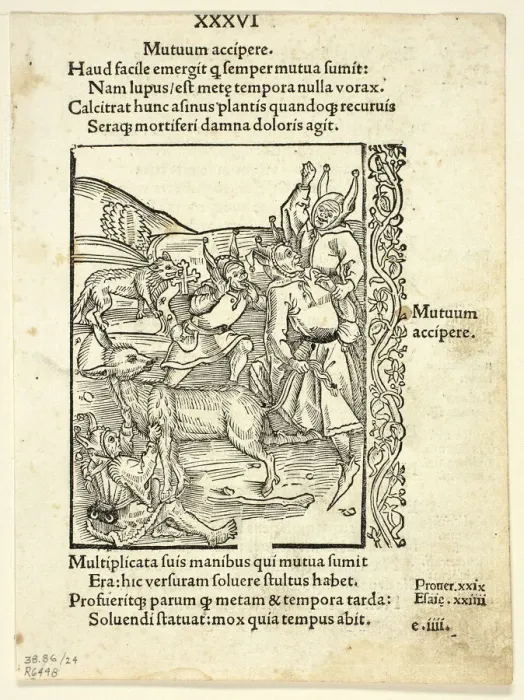 XXXVI
Mutuum accipere.
Haud facile emergit q̃ semper mutua sumit:
Nam lupus/est metę tempora nulla vorax.
Calcitrat hunc asinus plantis quandoqʒ recuruis
Seraqʒ mortiferi damna doloris agit.
Mutuum
accipere.
Multiplicata suis manibus qui mutua sumit
Era: hic versuram soluere stultus habet.
Profueritqʒ parum q̃ metam & tempora tarda:
Soluendi statuat: mox quia tempus abit.
Prouer. xxix
Esaię. xxiiii
e. iiii.
38.86/24
R6448